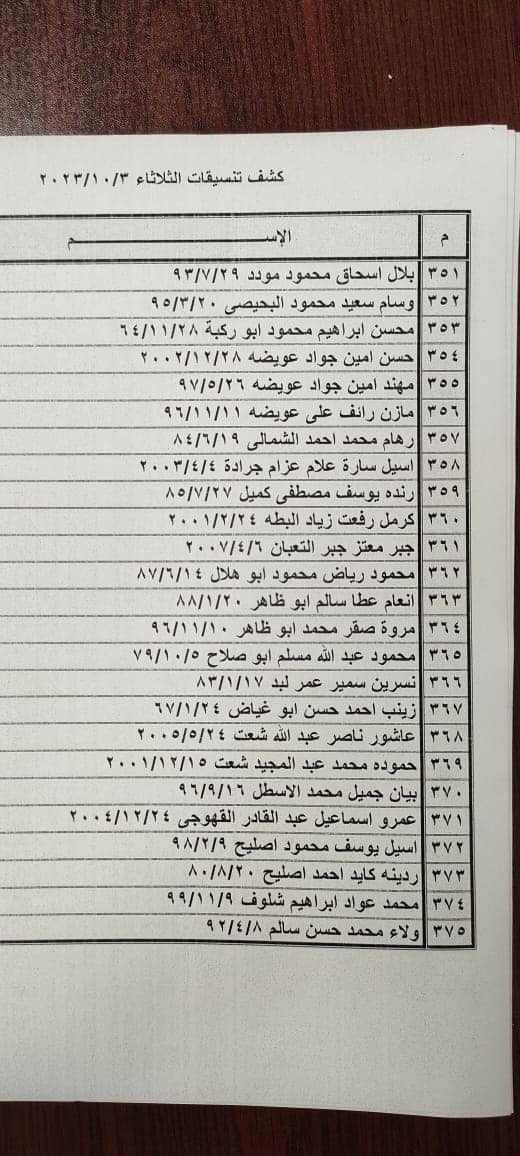 كشف تنسيقات الثلاثاء ٢٠٢٣/١٠/٣
م الإســـــــــــــــم
٣٥١ بلال اسحاق محمود مودد ٩٣/٧/٢٩
٣٥٢ وسام سعيد محمود البحيصى ٩٥/٣/٢٠
٣٥٣ محسن ابراهيم محمود ابو ركبة ٦٤/١١/٢٨
٣٥٤ حسن امين جواد عويضه ٢٠٠٢/١٢/٢٨
٣٥٥ مهند امين جواد عويضه ٩٧/٥/٢٦
٣٥٦ مازن رائف على عويضه ٩٦/١١/١١
٣٥٧ رهام محمد احمد الشمالى ٨٤/٦/١٩
٣٥٨ اسيل سارة علام عزام جرادة ٢٠٠٣/٤/٤
٣٥٩ رنده يوسف مصطفى كميل ٨٥/٧/٢٧
٣٦٠ كرمل رفعت زياد البطه ٢٠٠١/٢/٢٤
٣٦١ جبر معتز جبر التعبان ٢٠٠٧/٤/٦
٣٦٢ محمود رياض محمود ابو هلال ٨٧/٦/١٤
٣٦٣ انعام عطا سالم ابو ظاهر ٨٨/١/٢٠
٣٦٤ مروة صقر محمد ابو ظاهر ٩٦/١١/١٠
٣٦٥ محمود عبد الله مسلم ابو صلاح ٧٩/١٠/٥
٣٦٦ نسرين سمير عمر لبد ٨٣/١/١٧
٣٦٧ زينب احمد حسن ابو غياض ٦٧/١/٢٤
٣٦٨ عاشور ناصر عبد الله شعت ٢٠٠٥/٥/٢٤
٣٦٩ حموده محمد عبد المجيد شعت ٢٠٠١/١٢/١٥
٣٧٠ بيان جميل محمد الاسطل ٩٦/٩/١٦
٣٧١ عمرو اسماعيل عبد القادر القهوجى ٢٠٠٤/١٢/٢٤
٣٧٢ اسيل يوسف محمود اصليح ٩٨/٢/٩
٣٧٣ ردينه كايد احمد اصليح ٨٠/٨/٢٠
٣٧٤ محمد عواد ابراهيم شلوف ٩٩/١١/٩
٣٧٥ ولاء محمد حسن سالم ٩٢/٤/٨